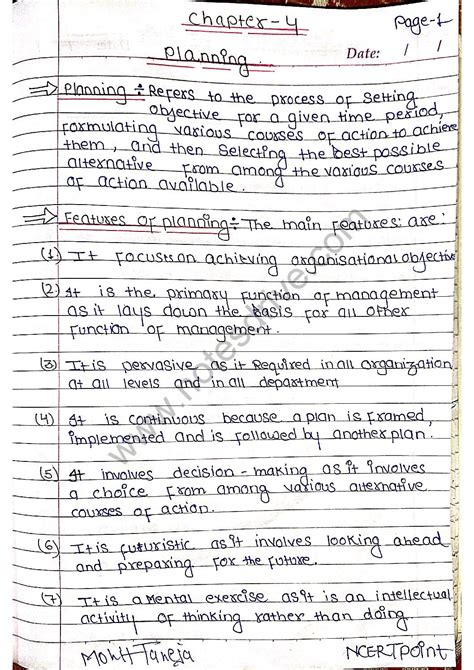 Chapter-4
Page-1
Planning
Date: / /
⇒ Planning ÷ Refers to the process of setting
objective for a given time period,
formulating various courses of action to achieve
them, and then selecting the best possible
alternative from among the various courses
of action available.
⇒ Features of planning ÷ The main features are:
(1) It focuses on achieving organisational objective
(2) It is the primary function of management
as it lays down the basis for all other
function of management.
(3) It is pervasive as it Required in all organization
at all levels and in all department
(4) It is continuous because a plan is framed,
implemented and is followed by another plan.
(5) It involves decision-making as it involves
a choice from among various alternative
courses of action.
(6) It is futuristic as it involves looking ahead
and preparing for the future.
(7) It is a mental exercise as it is an intellectual
activity of thinking rather than doing
Mohit Taneja
NCERTPoint
www.notesdrive.com